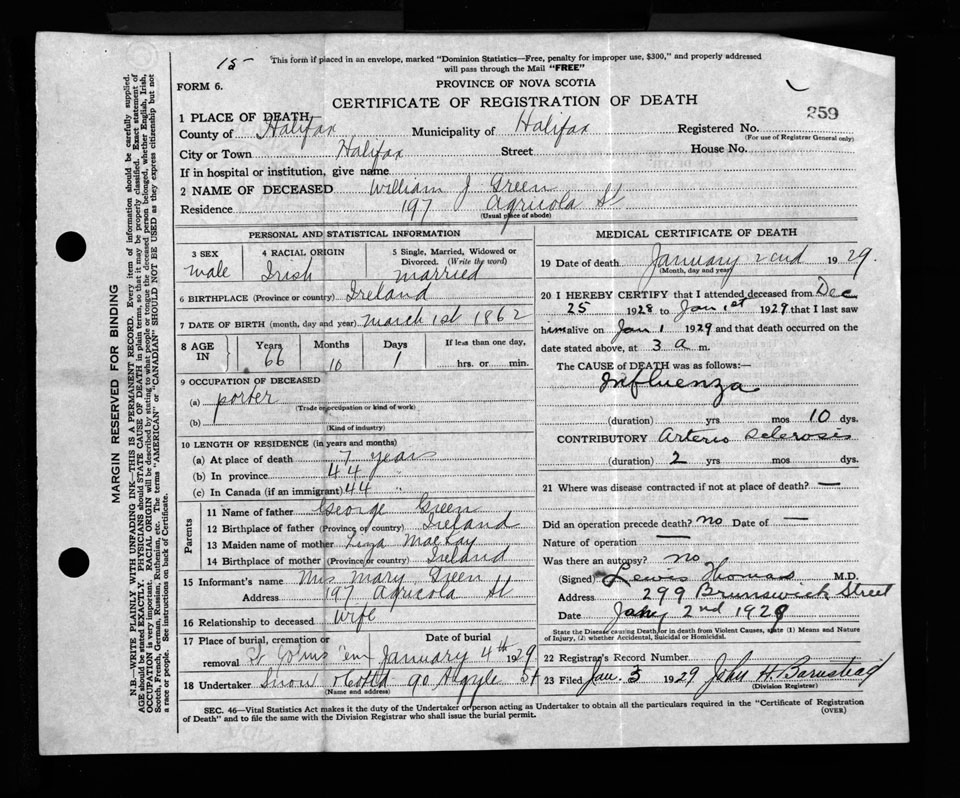 15
This form if placed in an envelope, marked "Dominion Statistics—Free, penalty for improper use, $300," and properly addressed
will pass through the Mail "FREE"
FORM 6.
PROVINCE OF NOVA SCOTIA
CERTIFICATE OF REGISTRATION OF DEATH
259
1 PLACE OF DEATH
County of Halifax Municipality of Halifax Registered No.
(For use of Registrar General only)
City or Town Halifax Street House No.
If in hospital or institution, give name
2 NAME OF DECEASED William J. Green
Residence 197 Agricola St
(Usual place of abode)
PERSONAL AND STATISTICAL INFORMATION
3 SEX 4 RACIAL ORIGIN 5 Single, Married, Widowed or
Divorced. (Write thy word)
male Irish married
6 BIRTHPLACE (Province or country) Ireland
7 DATE OF BIRTH (month, day and year) march 1st 1862
8 AGE IN Years Months Days If less than one day,
66 10 1 hrs. or min.
9 OCCUPATION OF DECEASED
(a) porter
(Trade or occupation or kind of work)
(b)
(Kind of industry)
10 LENGTH OF RESIDENCE (in years and months)
(a) At place of death 7 years
(b) In province 44 "
(c) In Canada (if an immigrant) 44 "
Parents
11 Name of father George Green
12 Birthplace of father (Province or country) Ireland
13 Maiden name of mother Liza MacKay
14 Birthplace of mother (Province or country) Ireland
15 Informant's name Mrs Mary Green
Address 197 Agricola St
16 Relationship to deceased Wife
17 Place of burial, cremation or Date of burial
removal St Johns Cem January 4th 1929
18 Undertaker Snow & Co Ltd 90 Argyle St
(Name and address)
MEDICAL CERTIFICATE OF DEATH
19 Date of death January 2nd 1929.
(Month, day and year)
20 I HEREBY CERTIFY that I attended deceased from Dec
25 1928 to Jan 1st 1929 that I last saw
him alive on Jan 1 1929 and that death occurred on
date stated above, at 3 a m.
The CAUSE of DEATH was as follows:—
Influenza
(duration) yrs mos 10 dys.
CONTRIBUTORY Arterio Sclerosis
(duration) 2 yrs mos dys.
21 Where was disease contracted if not at place of death? —
Did an operation precede death? no Date of —
Nature of operation —
Was there an autopsy? no
(Signed) Lewis Thomas M.D.
Address 299 Brunswick Street
Date Jany 2nd 1929
State the Disease causing Death, or in death from Violent Causes, state (1) Means and Nature
of Injury, (2) whether Accidental, Suicidal or Homicidal.
22 Registrar's Record Number
23 Filed Jan. 3 1929 John H. Barnstead
(Division Registrar)
SEC. 46—Vital Statistics Act makes it the duty of the Undertaker or person acting as Undertaker to obtain all the particulars required in the "Certificate of Registration
of Death" and to file the same with the Division Registrar who shall issue the burial permit.
(OVER)
MARGIN RESERVED FOR BINDING
N.B.—WRITE PLAINLY WITH UNFADING INK—THIS IS A PERMANENT RECORD. Every item of information should be carefully supplied.
AGE should be stated EXACTLY. PHYSICIANS should STATE CAUSE OF DEATH in plain terms, so that it may be properly classified. Exact statement of
OCCUPATION is very important. RACIAL ORIGIN will be described by stating to what people or tongue the deceased person belonged, whether English, Irish,
Scotch, French, German, Russian, Ruthenian, etc. The terms "AMERICAN" or "CANADIAN" SHOULD NOT BE USED as they express citizenship but not
a race or people. See instructions on back of Certificate.